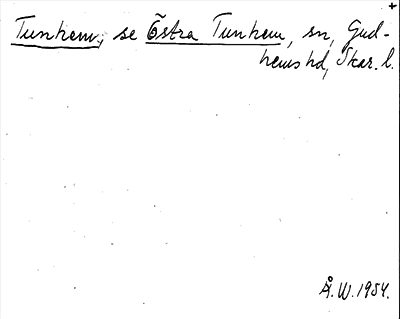 +
Tunhem, se Östra Tunhem, sn, Gud-
hems hd, Skar. l.
Å. W. 1954.